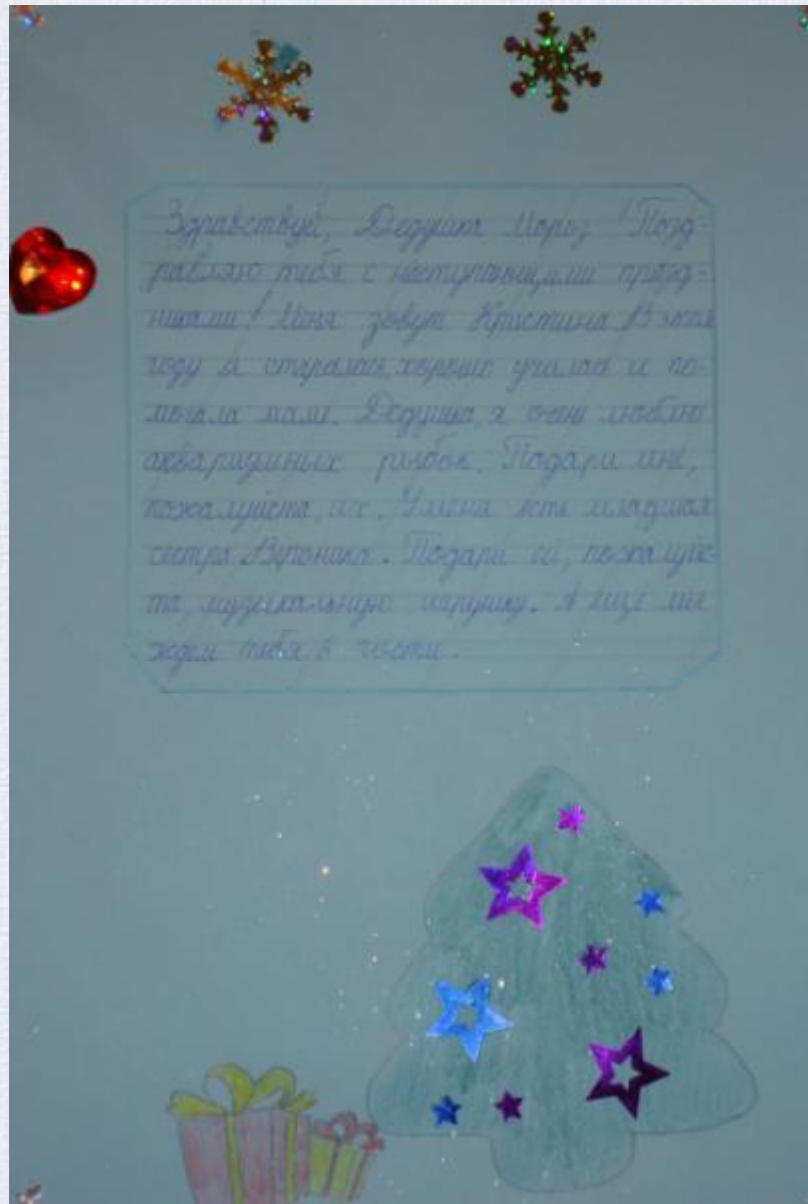 Здравствуй, Дедушка Мороз! Позд-
равляю тебя с наступающими празд-
никами! Меня зовут Кристина. В этом
году я старалась, хорошо училась и по-
могала маме. Дедушка, я очень люблю
аквариумных рыбок. Подари мне,
пожалуйста, их. У меня есть младшая
сестра Вероника. Подари ей, пожалуйс-
та, музыкальную игрушку. А ещё мы
ждём тебя в гости.